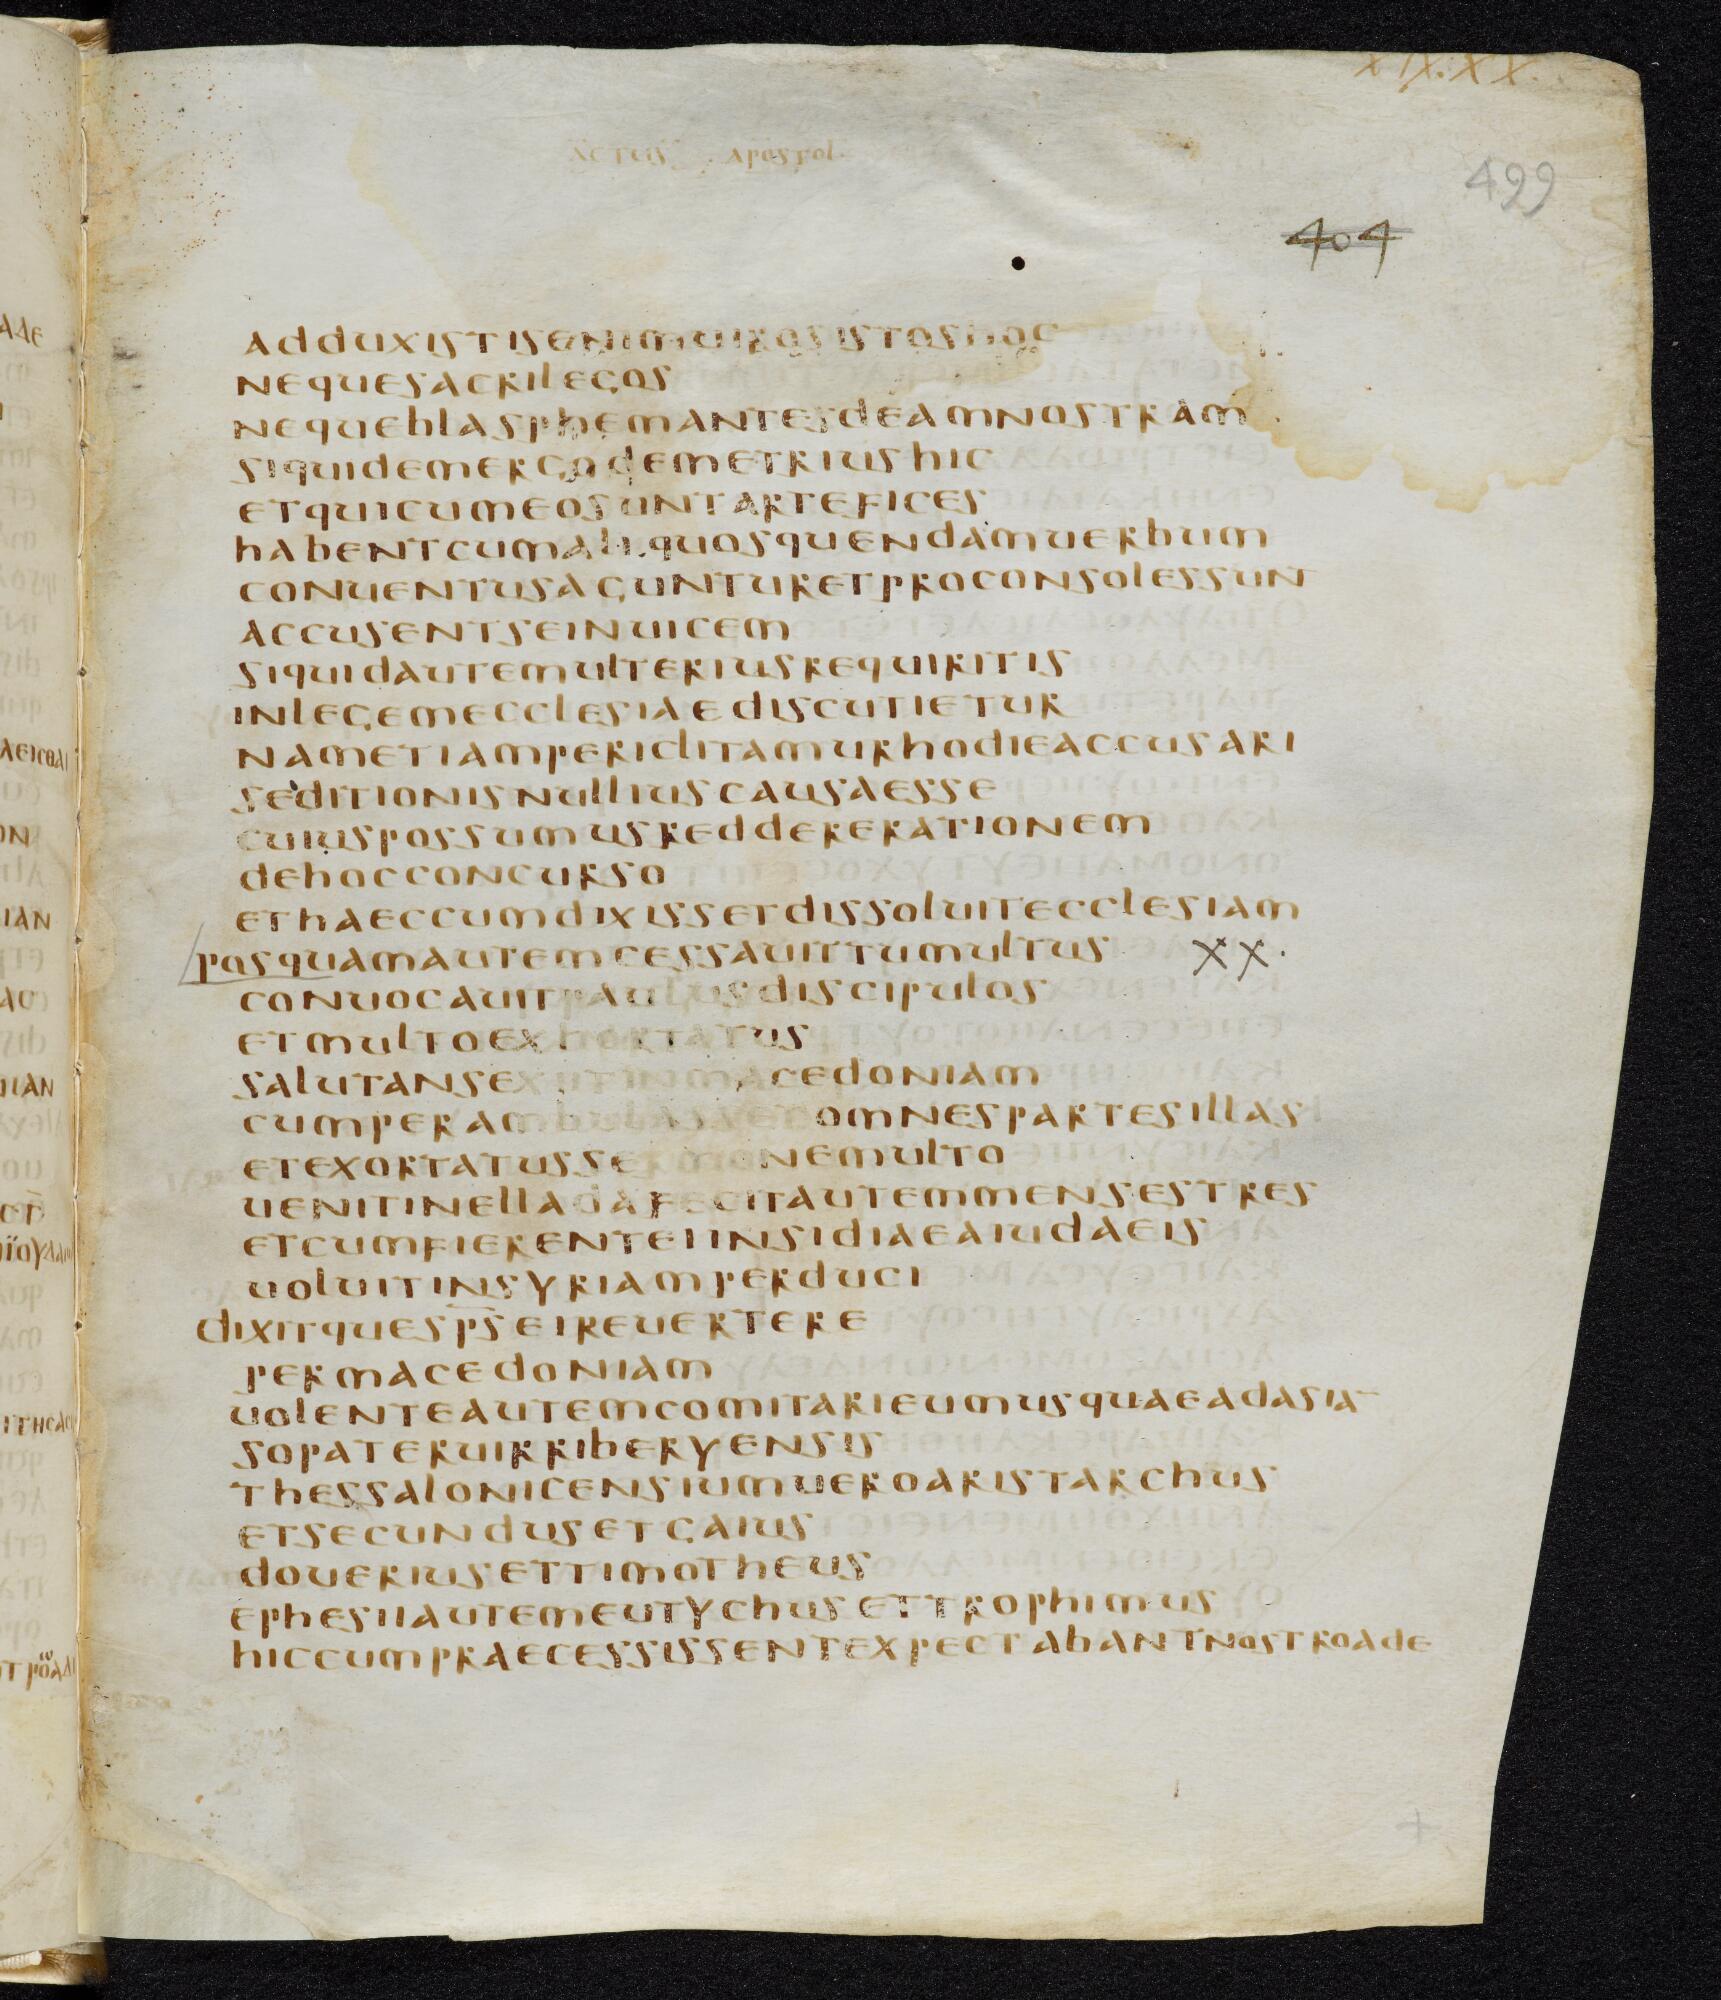 XIX. XX.
ACTUS Apostol.
499
404
adduxistisenimuirosistoshoc
nequesacrilegos
nequeblasphemantesdeamnostram
siquidemergodemetriushic
etquicumeosuntartefices
habentcumaliquosquendamuerbum
conuentusagunturetproconsolessunt
accusentseinuicem
siquidautemulteriusrequiritis
inlegemecclesiaediscutietur
nametiampericlitamurhodieaccusari
seditionisnulliuscausaesse
cuiuspossumusreddererationem
dehocconcurso
ethaeccumdixissetdissoluitecclesiam
posquamautemcessauittumultus XX.
conuocauitpaulusdiscipulos
etmultoexhortatus
salutansexiitinmacedoniam
cumperam omnespartesillas
etexortatussermonemulto
uenitinelladafecitautemmensestres
etcumfierenteiinsidiaeaiudaeis
uoluitinsyriamperduci
dixitquesp̄s̄eireuertere
permacedoniam
uolenteautemcomitarieumusquaeadasia̅
sopateruirriberyensis
thessalonicensiumueroaristarchus
etsecundusetgaius
doueriusettimotheus
ephesiiautemeutychusettrophimus
hiccumpraecessissentexpectabantnostroade